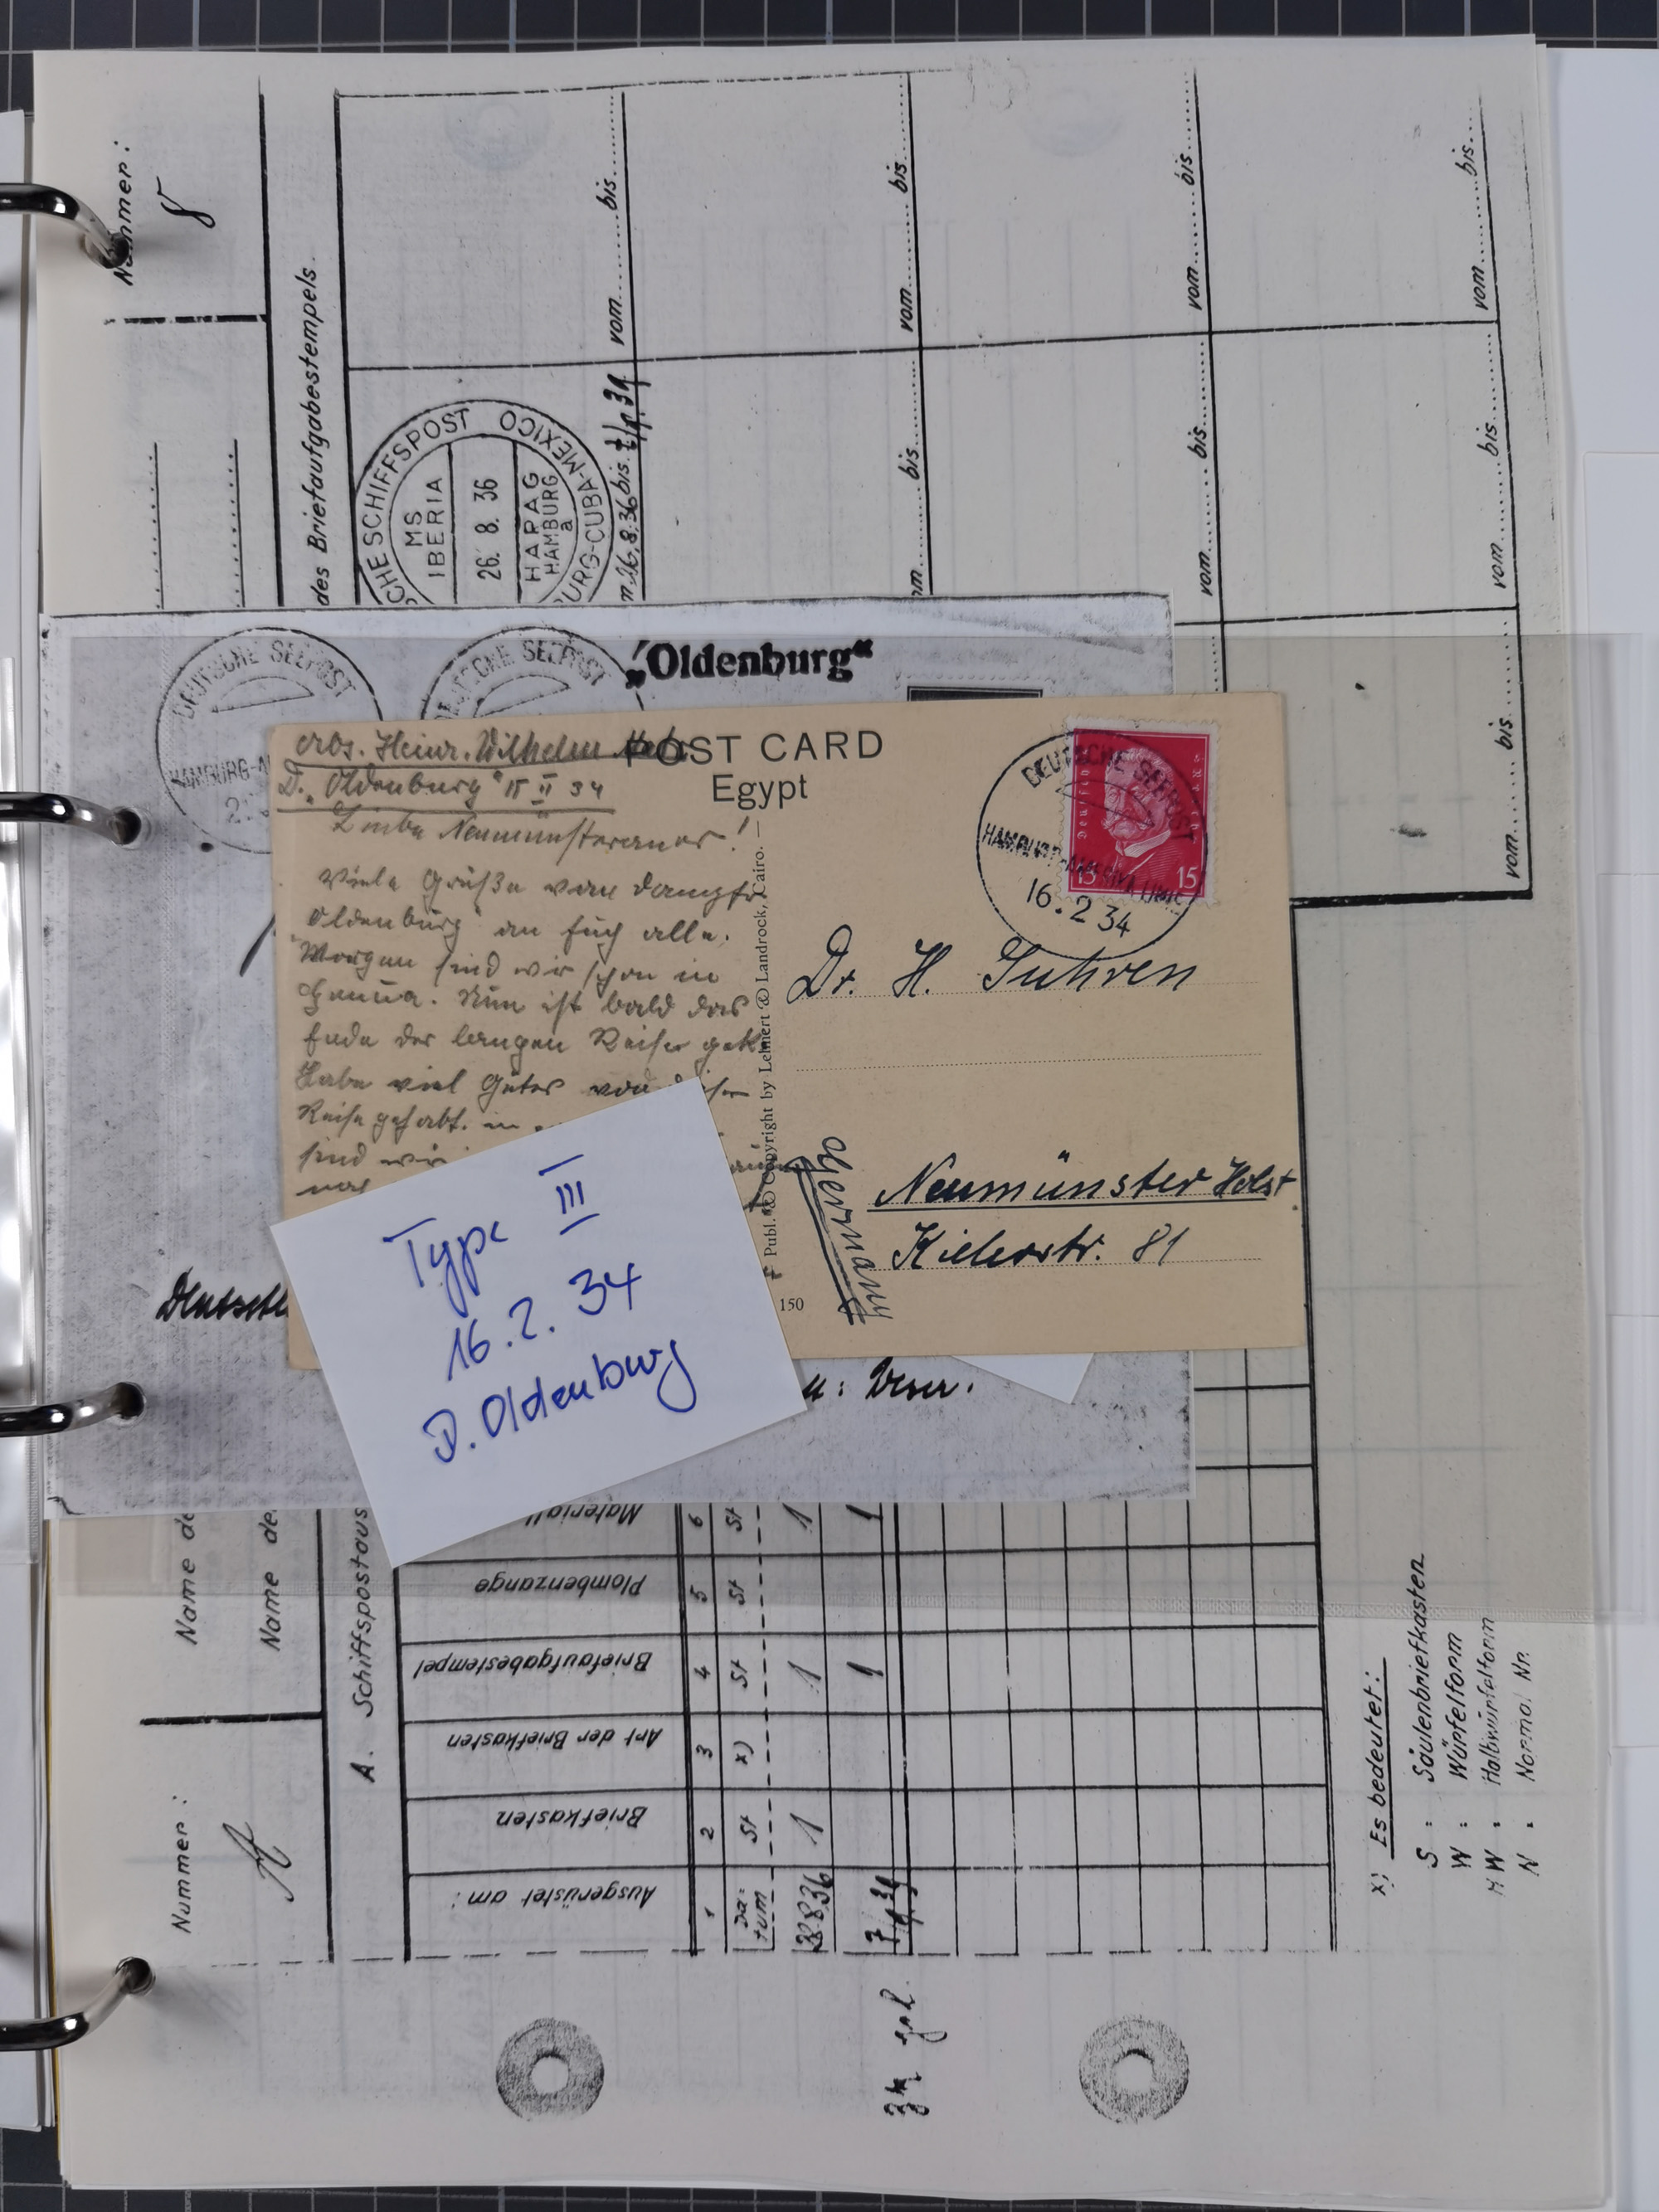 Nummer:
8
des Briefaufgabestempels.
CHE SCHIFFSPOST
MS
IBERIA
26. 8. 36
HAPAG
HAMBURG
a
URG-CUBA-MEXICO
26.8.36 bis
vom bis
vom bis
bis
vom bis
vom bis
vom bis
vom bis
vom bis
DEUTSCHE SEEPOST
HAMBURG-A
DEUTSCHE SEEPOST
„Oldenburg“
POST CARD
Egypt
Abs. Heinr. Wilhelm
D. „Oldenburg“ 15 II 34
Liebe Neumünsteraner!
Viele Grüße vom Dampfr
Oldenburg an Euch alle.
Morgen sind wir schon in
Genua. Nun ist bald das
Ende der langen Reise
Habe viel Gutes von
Reise gehabt. in
sind wir
Publ. & Copyright by Lehnert & Landrock, Cairo.
150
DEUTSCHE SEEPOST
HAMBURG-AMERIKA LINIE
16. 2 34
15 15
Dr. H. Suhren
Neumünster Holst
Kielerstr. 81
Germany
Type III
16.2.34
D. Oldenburg
Name de
Name de
Nummer:
A. Schiffspostaus
Material
Plombenzange
Briefaufgabestempel
Art der Briefkasten
Briefkasten
Ausgerüstet am:
6 5 4 3 2 1
St St St x) St Da-tum
1 1 1
1 1
x) Es bedeutet:
S : Säulenbriefkasten
W : Würfelform
HW : Halbwürfelform
N : Normal Nr.